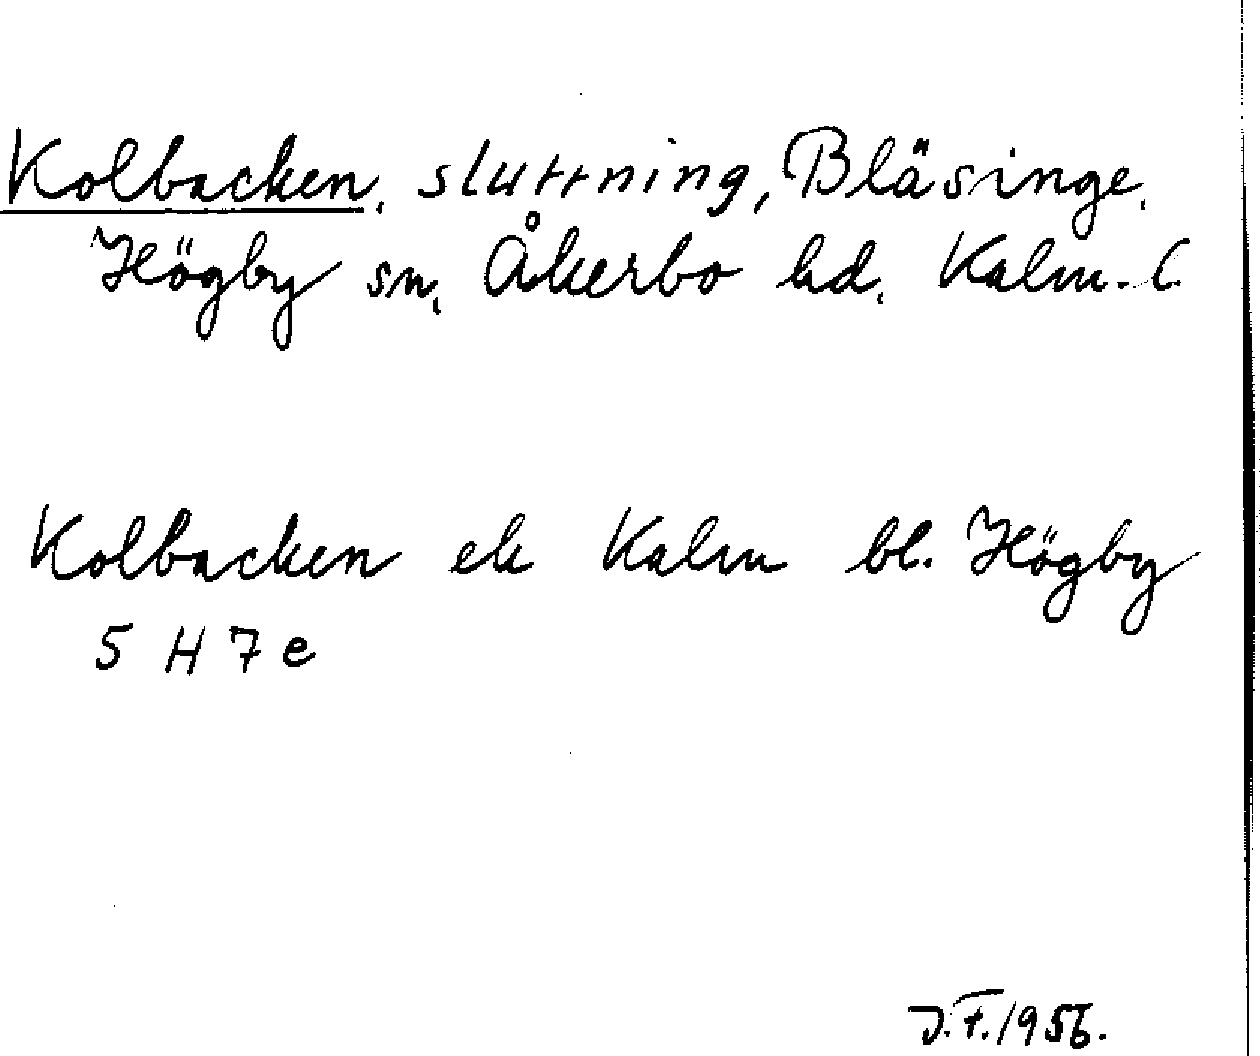 Kolbacken, sluttning, Bläsinge,
Högby sn, Åkerbo hd, Kalm. l.
Kolbacken ek Kalm bl. Högby
5 H 7 e
J.F. 1956.